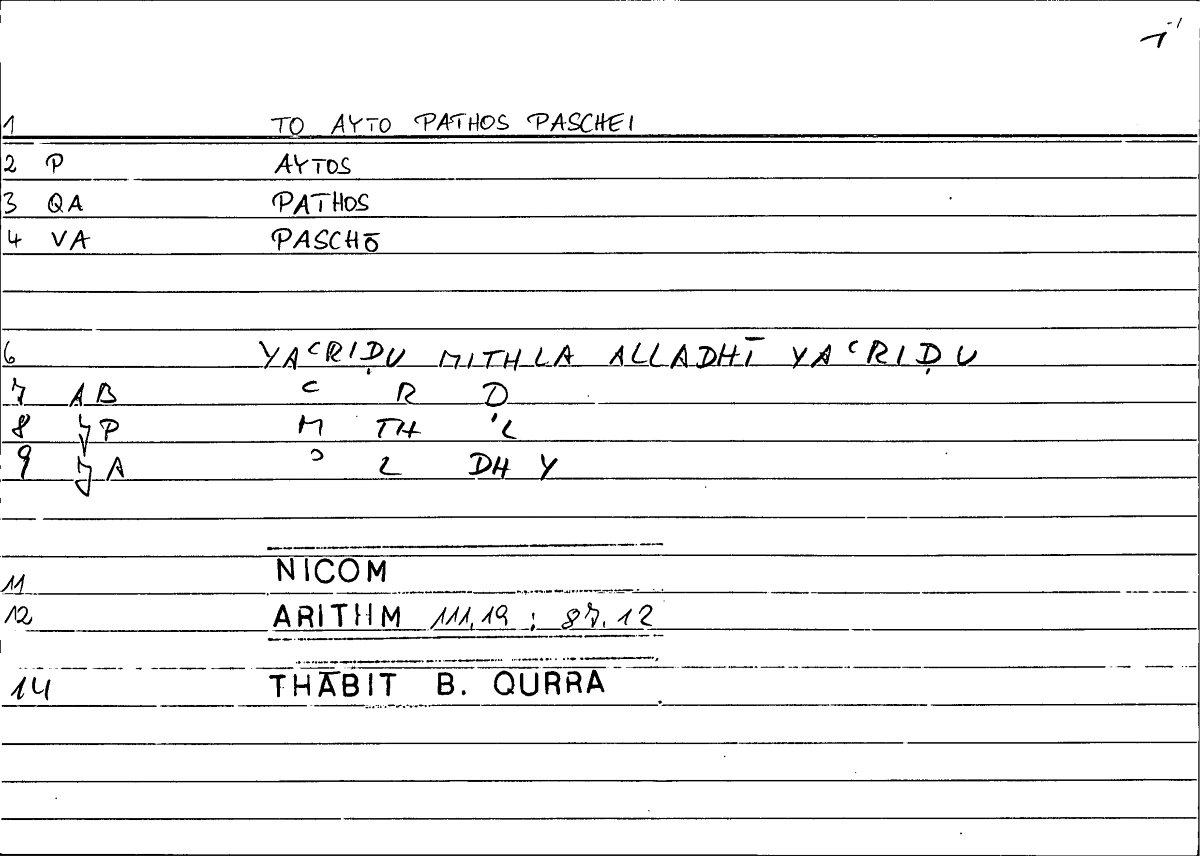 1 TO AYTO PATHOS PASCHEI
2 P AYTOS
3 QA PATHOS
4 VA PASCHŌ
6 YAʿRIḌU MITHLA ALLADHĪ YAʿRIḌU
7 AB ʿ R Ḍ
8 JP M TH 'L
9 JA ʾ L DH Y
11 NICOM
12 ARITHM 111,19 ; 87,12
14 THĀBIT B. QURRA